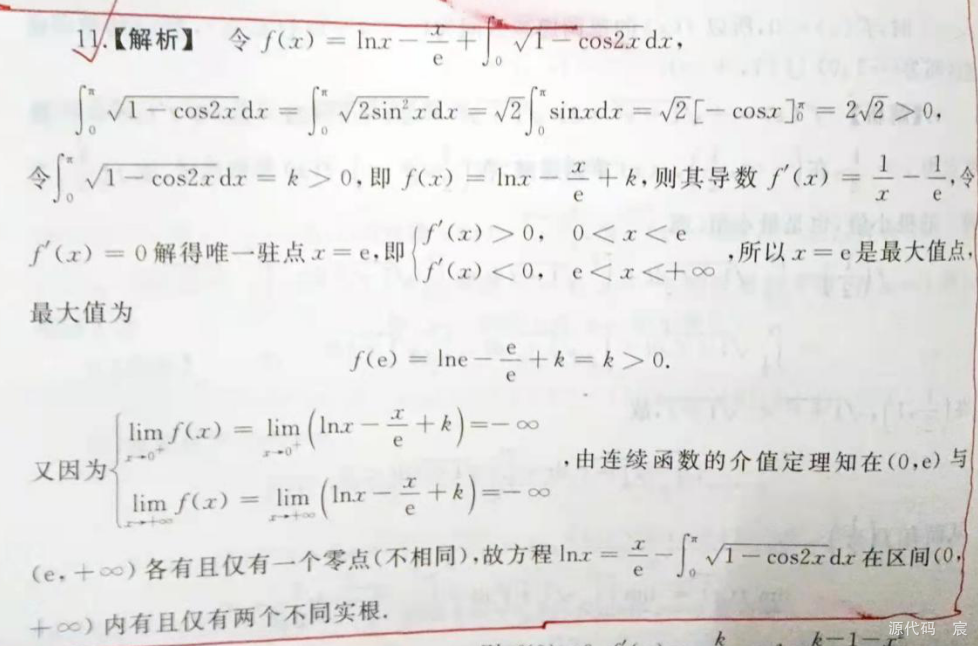 11.【解析】 令 f(x) = lnx − x/e + ∫₀^π √(1 − cos2x) dx,
∫₀^π √(1 − cos2x) dx = ∫₀^π √(2sin²x) dx = √2 ∫₀^π sinxdx = √2 [− cosx]₀^π = 2√2 > 0,
令∫₀^π √(1 − cos2x) dx = k > 0,即 f(x) = lnx − x/e + k,则其导数 f′(x) = 1/x − 1/e,令
f′(x) = 0 解得唯一驻点 x = e,即 { f′(x) > 0, 0 < x < e ; f′(x) < 0, e < x < +∞ ,所以 x = e 是最大值点,
最大值为
f(e) = lne − e/e + k = k > 0.
又因为 { lim_{x→0⁺} f(x) = lim_{x→0⁺} (lnx − x/e + k) = − ∞ ; lim_{x→+∞} f(x) = lim_{x→+∞} (lnx − x/e + k) = − ∞ ,由连续函数的介值定理知在(0,e) 与
(e, +∞) 各有且仅有一个零点(不相同),故方程 lnx = x/e − ∫₀^π √(1 − cos2x) dx 在区间(0,
+∞) 内有且仅有两个不同实根.
k k−1−x
源代码 宸